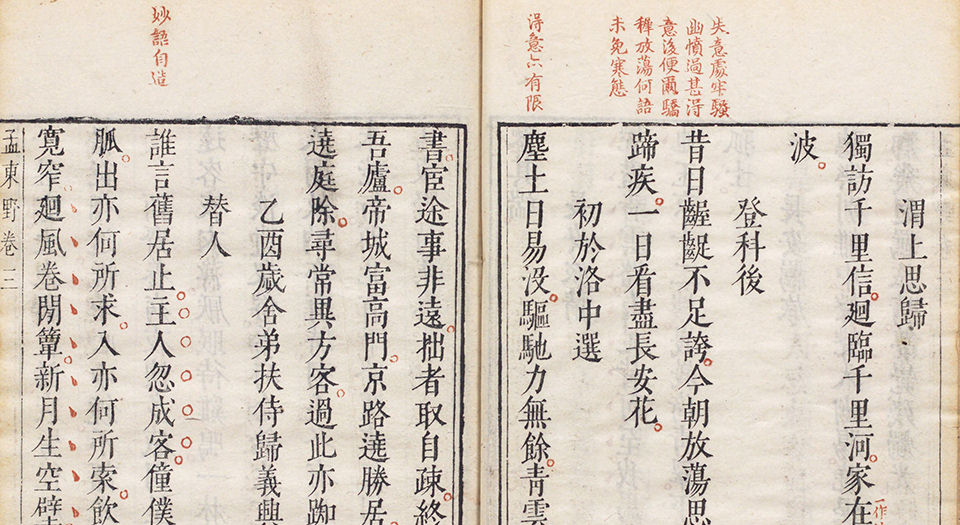 失意處牢騷
幽憤過甚得
意後便爾驕
穉放蕩何語
未免寒態
得意亦有限
渭上思歸
獨訪千里信廻臨千里河家在
一作
波
登科後
昔日齷齪不足誇今朝放蕩思
蹄疾一日看盡長安花
初於洛中選
塵土日易没驅馳力無餘青雲
妙語自造
書宦途事非遠拙者取自疎終
吾廬帝城富高門京路遶勝居
遶庭除尋常異方客過此亦踟
乙酉歲舍弟扶侍歸義興
替人
誰言舊居止主人忽成客僮僕
胍出亦何所求入亦何所索飲
寬窄廻風卷閒簟新月生空壁
孟東野卷三